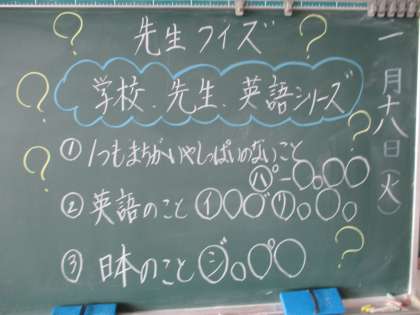 先生クイズ
学校、先生、英語シリーズ
① 1つもまちがいやしっぱいのないこと
パー○。○○
② 英語のこと イ○○゛リ○。○
③ 日本のこと ジ○。○゜○
一月十八日(火)